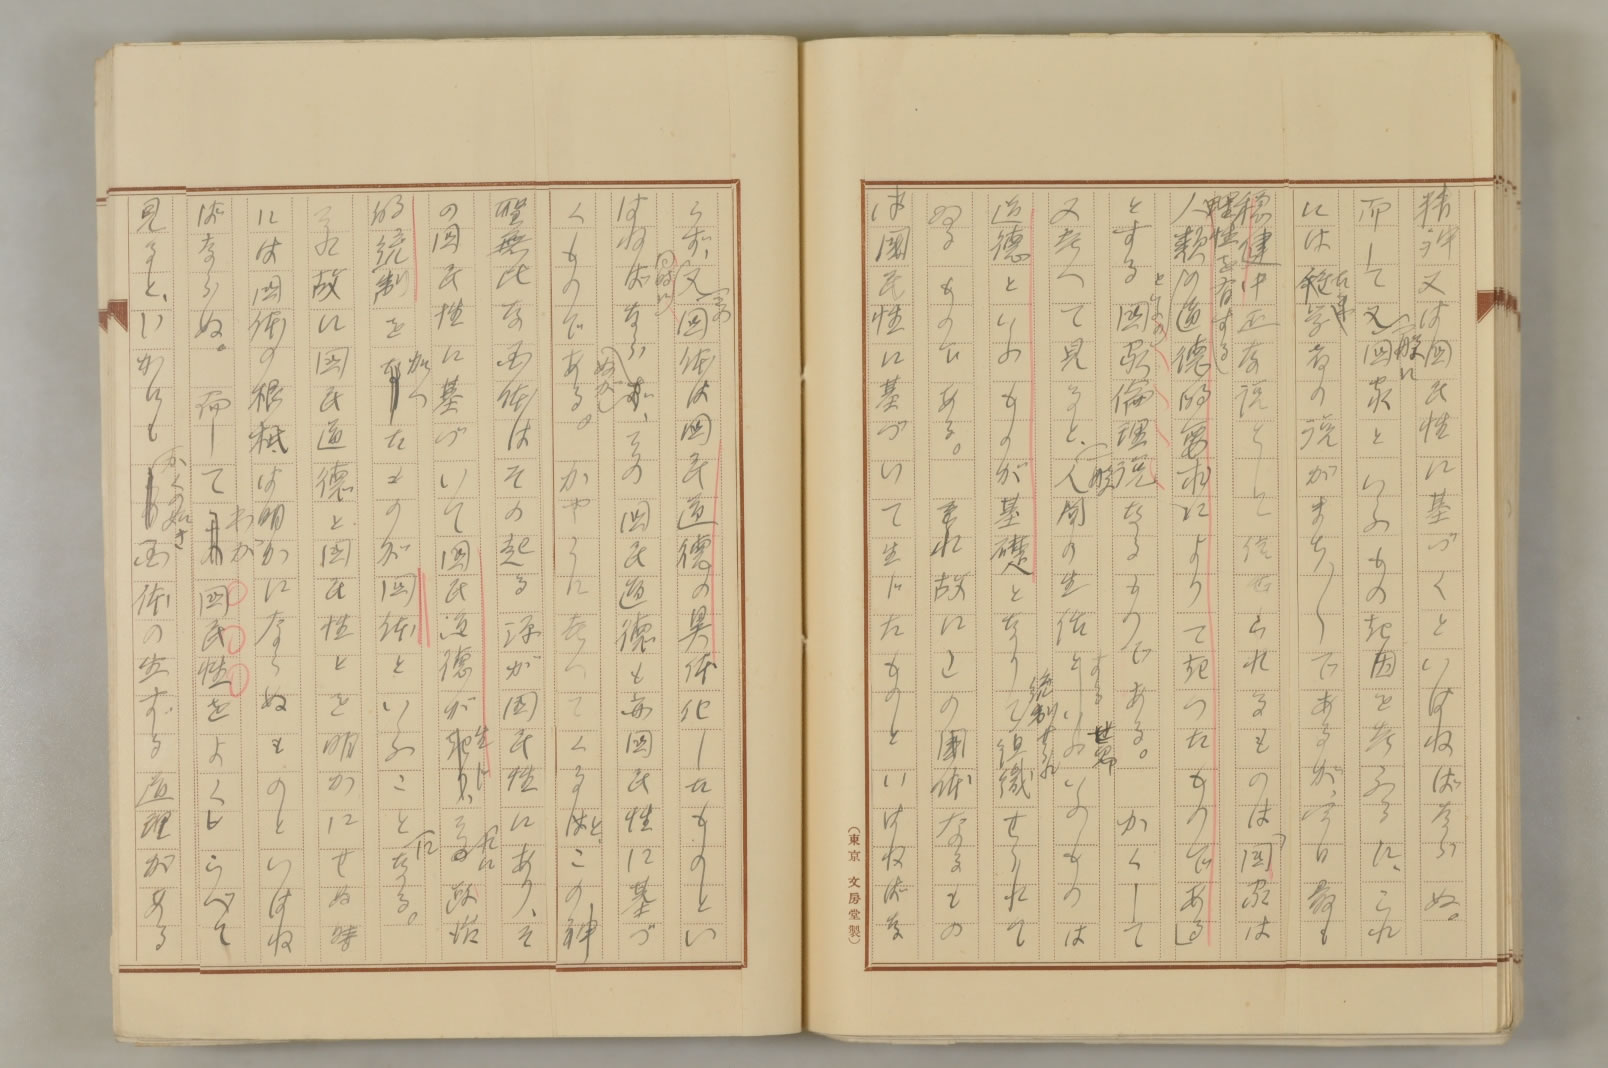 精神又は国民性に基づくといはねばならぬ。
而して又一般に国家といふものの起因を考ふるに、これ
には従来学者の説がまち〱であるが、今日最も
穏健中正な説として信ぜられるものは「国家は
理性を有する
人類の道徳的要求によりて起つたものである」
とする国家倫理説なるものである。かくして
又考へて見ると、一般人間の生活するといふ世界のものは
道徳といふものが基礎となりて統制せられ組織せられて
ゐるものである。それ故にこの国体なるもの
は国民性に基づいて生じたものといはねばな
らず、又国体は国民道徳の具体化したものとい
はねばならぬが、その国民道徳も亦国民性に基づ
くものである。かやうに考へてくると、この神
聖無比な国体はその起る源が国民性にあり、そ
の国民性に基づいて国民道徳が生じ、
的統制を加へたものが国体といふことになる。
それ故に国民道徳と国民性とを明かにせぬ時
には国体の根柢は明かにならぬものといはね
ばならぬ。而してわが国民性をよくしらべて
見ると、いかにもかくの如き国体の生ずる道理がある
(東京 文房堂製)